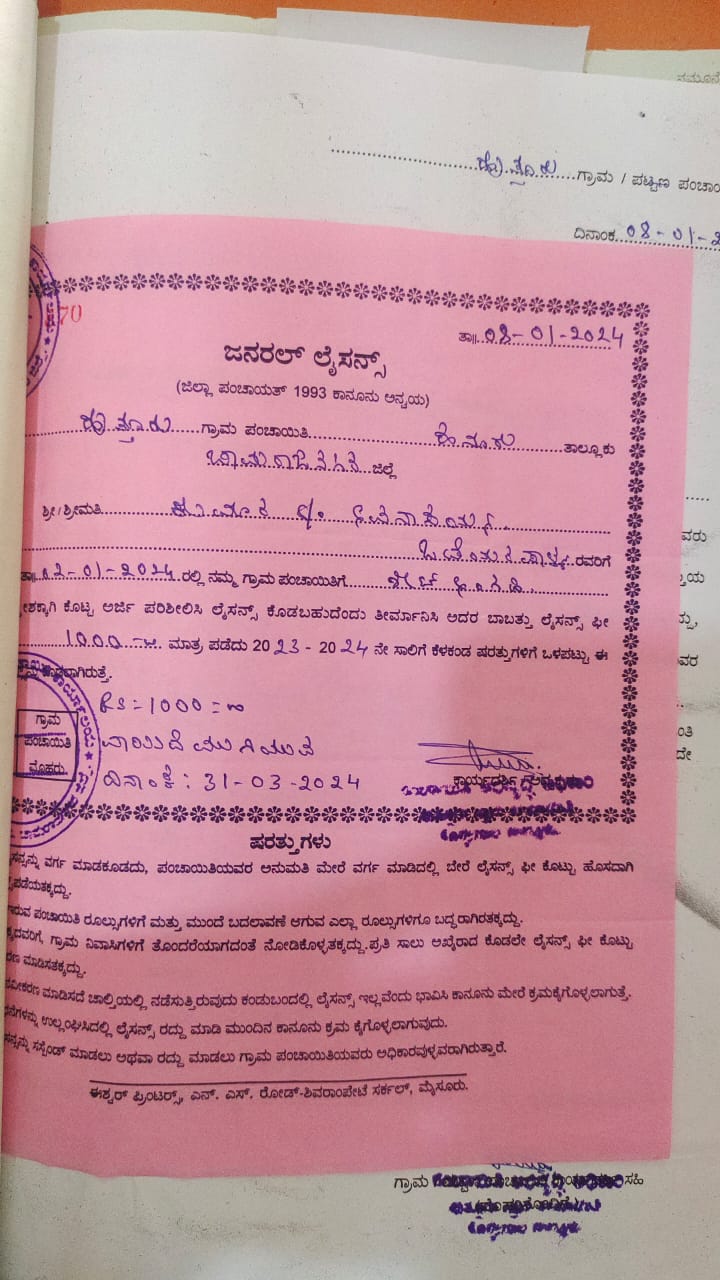 ನಮೂನೆ
ಗ್ರಾಮ / ಪಟ್ಟಣ ಪಂಚಾಯ
ದಿನಾಂಕ 08-01-2
70
ತಾ॥ 08-01-2024
ಜನರಲ್ ಲೈಸನ್ಸ್
(ಜಿಲ್ಲಾ ಪಂಚಾಯತ್ 1993 ಕಾನೂನು ಅನ್ವಯ)
ಗ್ರಾಮ ಪಂಚಾಯಿತಿ ತಾಲ್ಲೂಕು
ಚಾಮರಾಜನಗರ ಜಿಲ್ಲೆ
ಶ್ರೀ/ಶ್ರೀಮತಿ ಕುಮಾರ
ಒಡೆಯರಪಾಳ್ಯ ರವರಿಗೆ
ತಾ॥ 02-01-2024 ರಲ್ಲಿ ನಮ್ಮ ಗ್ರಾಮ ಪಂಚಾಯಿತಿಗೆ
ಕ್ಕಾಗಿ ಕೊಟ್ಟ ಅರ್ಜಿ ಪರಿಶೀಲಿಸಿ ಲೈಸನ್ಸ್ ಕೊಡಬಹುದೆಂದು ತೀರ್ಮಾನಿಸಿ ಅದರ ಬಾಬತ್ತು ಲೈಸನ್ಸ್ ಫೀ
1000 ಮಾತ್ರ ಪಡೆದು 2023 - 2024 ನೇ ಸಾಲಿಗೆ ಕೆಳಕಂಡ ಷರತ್ತುಗಳಿಗೆ ಒಳಪಟ್ಟು ಈ
Rs=1000=00
ಗ್ರಾಮ
ಪಂಚಾಯಿತಿ
ಮೊಹರು.
ವಾಯಿದೆ ಮುಗಿಯುವ
ದಿನಾಂಕ : 31-03-2024
ಕಾರ್ಯದರ್ಶಿ
ಷರತ್ತುಗಳು
ಸನ್ಸನ್ನು ವರ್ಗ ಮಾಡಕೂಡದು, ಪಂಚಾಯಿತಿಯವರ ಅನುಮತಿ ಮೇರೆ ವರ್ಗ ಮಾಡಿದಲ್ಲಿ ಬೇರೆ ಲೈಸನ್ಸ್ ಫೀ ಕೊಟ್ಟು ಹೊಸದಾಗಿ
ಪಡೆಯತಕ್ಕದ್ದು.
ಇರುವ ಪಂಚಾಯಿತಿ ರೂಲ್ಸುಗಳಿಗೆ ಮತ್ತು ಮುಂದೆ ಬದಲಾವಣೆ ಆಗುವ ಎಲ್ಲಾ ರೂಲ್ಸುಗಳಿಗೂ ಬದ್ಧರಾಗಿರತಕ್ಕದ್ದು.
ಕ್ಕದವರಿಗೆ, ಗ್ರಾಮ ನಿವಾಸಿಗಳಿಗೆ ತೊಂದರೆಯಾಗದಂತೆ ನೋಡಿಕೊಳ್ಳತಕ್ಕದ್ದು. ಪ್ರತಿ ಸಾಲು ಅಖೈರಾದ ಕೊಡಲೇ ಲೈಸನ್ಸ್ ಫೀ ಕೊಟ್ಟು
ರಣ ಮಾಡಿಸತಕ್ಕದ್ದು.
ನವೀಕರಣ ಮಾಡಿಸದೆ ಚಾಲ್ತಿಯಲ್ಲಿ ನಡೆಸುತ್ತಿರುವುದು ಕಂಡುಬಂದಲ್ಲಿ ಲೈಸನ್ಸ್ ಇಲ್ಲವೆಂದು ಭಾವಿಸಿ ಕಾನೂನು ಮೇರೆ ಕ್ರಮಕೈಗೊಳ್ಳಲಾಗುತ್ತೆ.
ನೆಗಳನ್ನು ಉಲ್ಲಂಘಿಸಿದಲ್ಲಿ ಲೈಸನ್ಸ್ ರದ್ದು ಮಾಡಿ ಮುಂದಿನ ಕಾನೂನು ಕ್ರಮ ಕೈಗೊಳ್ಳಲಾಗುವುದು.
ಸನ್ಸನ್ನು ಸಸ್ಪೆಂಡ್ ಮಾಡಲು ಅಥವಾ ರದ್ದು ಮಾಡಲು ಗ್ರಾಮ ಪಂಚಾಯಿತಿಯವರು ಅಧಿಕಾರವುಳ್ಳವರಾಗಿರುತ್ತಾರೆ.
ಈಶ್ವರ್ ಪ್ರಿಂಟರ್ಸ್, ಎನ್. ಎಸ್. ರೋಡ್-ಶಿವರಾಂಪೇಟೆ ಸರ್ಕಲ್, ಮೈಸೂರು.
ಗ್ರಾಮ ಸಹಿ